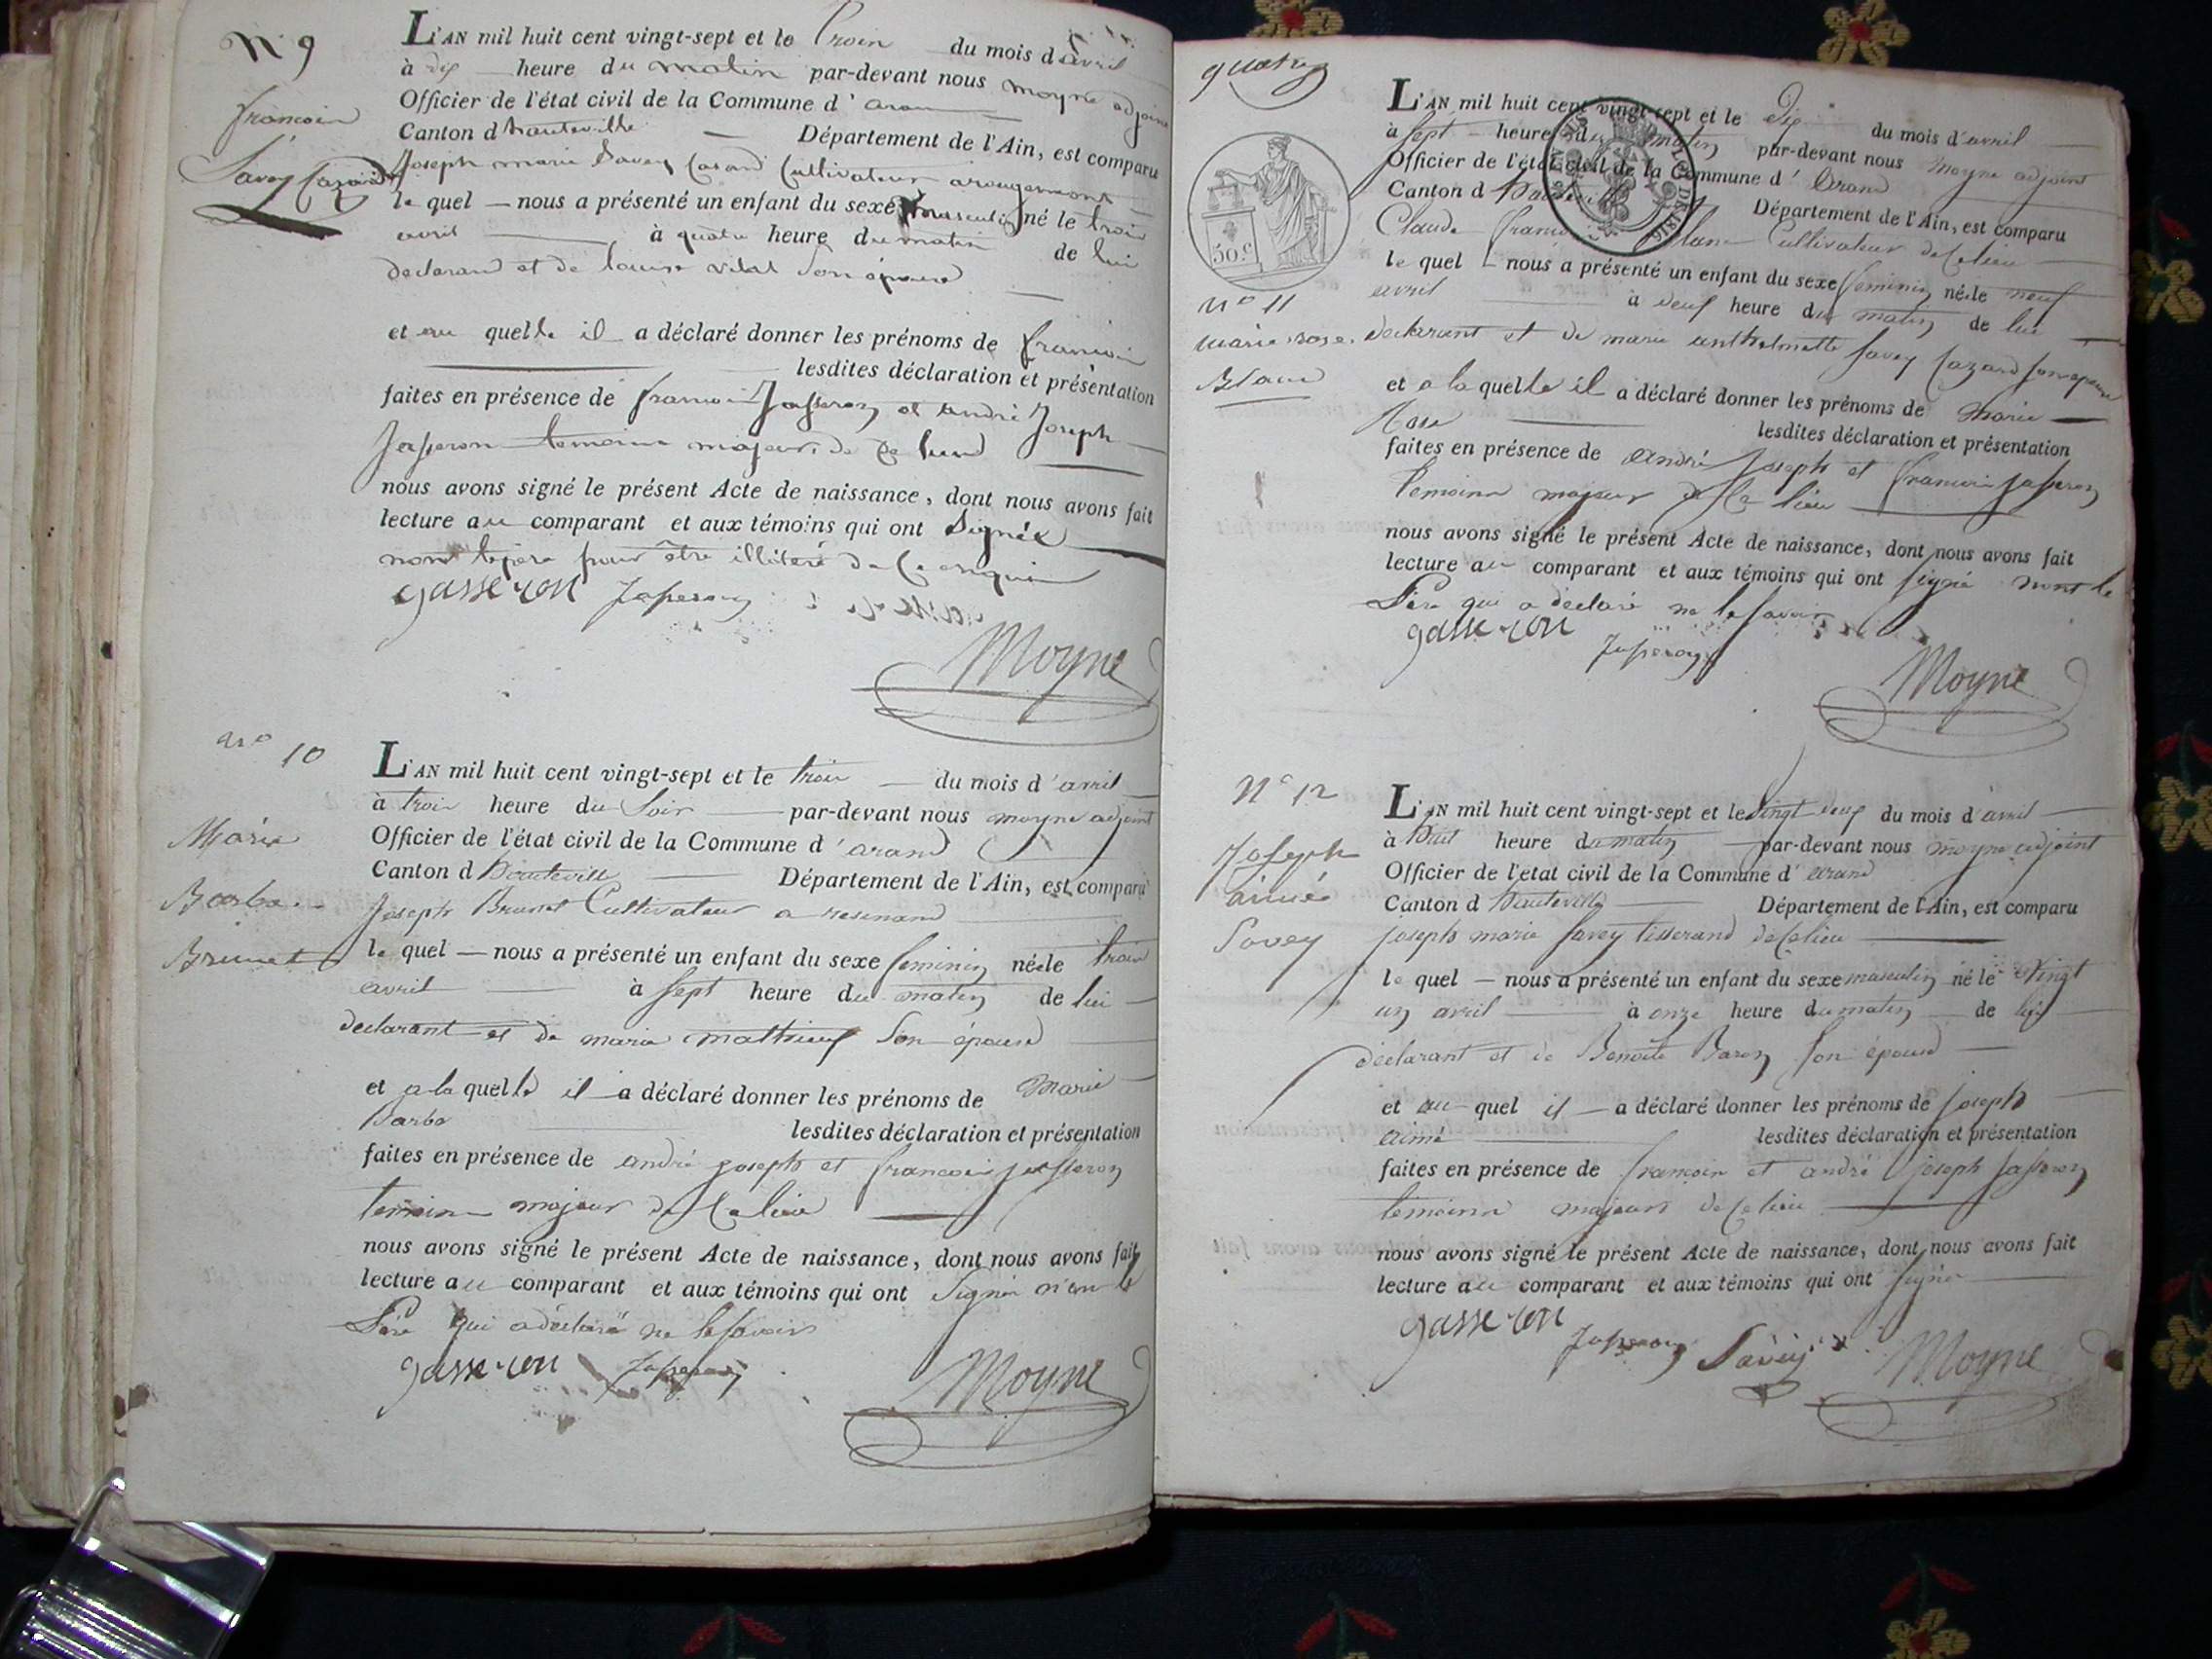 N° 9
francois
Savey Cazard
L'AN mil huit cent vingt-sept et le trois du mois d'avril
à dix heure du matin par-devant nous moyne adjoint
Officier de l'état civil de la Commune d'
Canton d hauteville Département de l'Ain, est comparu
Joseph marie Savey Casard Cultivateur
le quel nous a présenté un enfant du sexe masculin né le trois
avril à quatre heure du matin de lui
declarand et de louise vilat son épouse
et au quelle il a déclaré donner les prénoms de francois
lesdites déclaration et présentation
faites en présence de francois Jasseron et andré Joseph
Jasseron temoins majeurs de
nous avons signé le présent Acte de naissance, dont nous avons fait
lecture au comparant et aux témoins qui ont signés
nom le père pour être illiteré de ce enquis
gasseron Jasseron
Moyne
n° 10
Marie
Barbe
Brunet
L'AN mil huit cent vingt-sept et le trois du mois d'avril
à trois heure du soir par-devant nous moyne adjoint
Officier de l'état civil de la Commune d'arand
Canton d hauteville Département de l'Ain, est comparu
Joseph Brunet Cultivateur a resinand
le quel nous a présenté un enfant du sexe feminin née le trois
avril à sept heure du matin de lui
declarant et de marie mathieux son épouse
et a la quelle il a déclaré donner les prénoms de Marie
Barbe lesdites déclaration et présentation
faites en présence de andré joseph et francois jasseron
temoins majeur de Ce lieu
nous avons signé le présent Acte de naissance, dont nous avons fait
lecture au comparant et aux témoins qui ont signé non le
Père qui a déclaré ne le savoir
gasseron Jasseron
Moyne
quatre
50.c
N° 11
Marie rose
Blanc
L'AN mil huit cent vingt-sept et le dix du mois d'avril
à sept heure du matin par-devant nous moyne adjoint
Officier de l'état civil de la Commune d'Arand
Canton d hauteville Département de l'Ain, est comparu
Claude francois Blanc Cultivateur de Ce lieu
le quel nous a présenté un enfant du sexe feminin née le neuf
avril à neuf heure du matin de lui
declarant et de marie anthelmette Savey Cazard son épouse
et a la quelle il a déclaré donner les prénoms de Marie
Rose lesdites déclaration et présentation
faites en présence de andré Joseph et francois jasseron
temoins majeur de Ce lieu
nous avons signé le présent Acte de naissance, dont nous avons fait
lecture au comparant et aux témoins qui ont signé nont le
Père qui a déclaré ne le savoir
gasseron
Jasseron
Moyne
N° 12
Joseph
aimé
Savey
L'AN mil huit cent vingt-sept et le vingt deux du mois d'avril
à huit heure du matin par-devant nous moyne adjoint
Officier de l'etat civil de la Commune d'arand
Canton d hauteville Département de l'Ain, est comparu
joseph marie savey tisserand de Ce lieu
le quel nous a présenté un enfant du sexe masculin né le vingt
un avril à onze heure du matin de lui
déclarant et de Benoite Baron son épouse
et au quel il a déclaré donner les prénoms de joseph
aimé lesdites déclaration et présentation
faites en présence de francois et andré joseph jasseron
temoins majeurs de Ce lieu
nous avons signé le présent Acte de naissance, dont nous avons fait
lecture au comparant et aux témoins qui ont signé
gasseron
Jasseron Savey Moyne